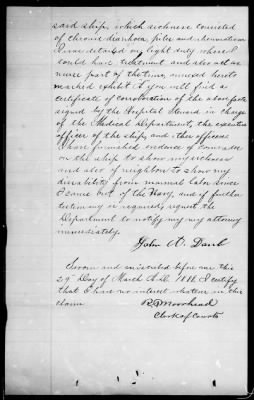 said ship, which sickness consisted
of chronic diarrhoea, piles and rheumatism
I was detailed on light duty where I
could have treatment and also act as
nurse part of the time, annexed hereto
marked exhibit A you will find a
certificate of corroboration of the above facts
signed by the Hospital Steward in charge
of the Medical Department, the executive
officer of the ship, and other officers
I have furnished evidence of comrades
on the ship to show my sickness
and also of neighbors to show my
disability from manual labor since
I came out of the Navy, and if further
testimony is required, request the
Department to notify my attorney
immediately.
John
Sworn and subscribed before me this
29th Day of March A.D. 1888. I certify
that I have no interest whatever in this
claim
R Moorhead
Clerk of Courts